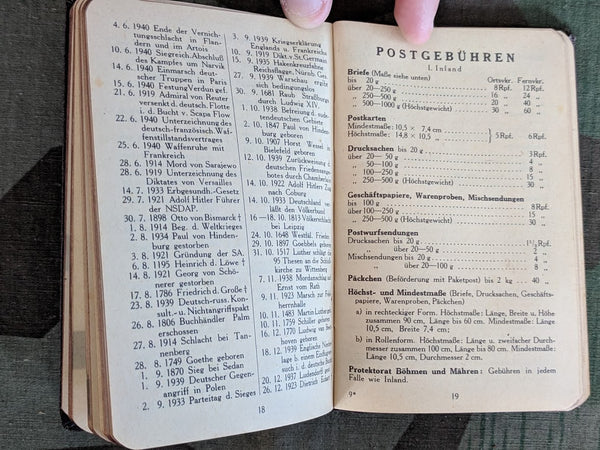 4. 6. 1940 Ende der Vernich-
tungsschlacht in Flan-
dern und im Artois
10. 6. 1940 Siegreich. Abschluß
des Kampfes um Narvik
14. 6. 1940 Einmarsch deut-
scher Truppen in Paris
15. 6. 1940 Festung Verdun gef.
21. 6. 1919 Admiral von Reuter
versenkt d. deutsch. Flotte
i. d. Bucht v. Scapa Flow
22. 6. 1940 Unterzeichnung des
deutsch-französisch. Waf-
fenstillstandsvertrages
25. 6. 1940 Waffenruhe mit
Frankreich
28. 6. 1914 Mord von Sarajewo
28. 6. 1919 Unterzeichnung des
Diktates von Versailles
14. 7. 1933 Erbgesundh.-Gesetz
29. 7. 1921 Adolf Hitler Führer
der NSDAP.
30. 7. 1898 Otto von Bismarck †
1. 8. 1914 Beg. d. Weltkrieges
2. 8. 1934 Paul von Hinden-
burg gestorben
3. 8. 1921 Gründung der SA.
6. 8. 1195 Heinrich d. Löwe †
14. 8. 1921 Georg von Schö-
nerer gestorben
17. 8. 1786 Friedrich d. Große †
23. 8. 1939 Deutsch-russ. Kon-
sult.- u. Nichtangriffspakt
26. 8. 1806 Buchhändler Palm
erschossen
27. 8. 1914 Schlacht bei Tan-
nenberg
28. 8. 1749 Goethe geboren
1. 9. 1870 Sieg bei Sedan
1. 9. 1939 Deutscher Gegen-
angriff in Polen
2. 9. 1933 Parteitag d. Sieges
3. 9. 1939 Kriegserklärung
Englands u. Frankreichs
10. 9. 1919 Dikt. v. St. Germain
15. 9. 1935 Hakenkreuzfahne
Reichsflagge, Nürnb. Ges.
27. 9. 1939 Warschau ergibt
sich bedingungslos
30. 9. 1681 Raub Straßburgs
durch Ludwig XIV.
1. 10. 1938 Befreiung d. sude-
tendeutschen Gebiete
2. 10. 1847 Paul von Hinden-
burg geboren
9. 10. 1907 Horst Wessel in
Bielefeld geboren
12. 10. 1939 Zurückweisung d.
deutschen Friedensange-
botes durch Chamberlain
14. 10. 1922 Adolf Hitlers Zug
nach Coburg
14. 10. 1933 Deutschland ver-
läßt den Völkerbund
16.—18. 10. 1813 Völkerschlacht
bei Leipzig
24. 10. 1648 Westfäl. Frieden
29. 10. 1897 Goebbels geboren
31. 10. 1517 Luther schlägt die
95 Thesen an die Schloß-
kirche zu Wittenberg
7. 11. 1938 Mordanschlag auf
Ernst vom Rath
9. 11. 1923 Marsch zur Feld-
herrnhalle
10. 11. 1483 Martin Luther geb.
10. 11. 1759 Schiller geboren
16. 12. 1770 Ludwig van Beet-
hoven geboren
18. 12. 1939 Englische Nieder-
lage b. einem Einflugver-
such i. d. deutsche Bucht
20. 12. 1937 Ludendorff gest.
26. 12. 1923 Dietrich Eckart †
18
POSTGEBÜHREN
I. Inland
Briefe (Maße siehe unten) Ortsvkr. Fernvkr.
bis 20 g 8 Rpf. 12 Rpf.
über 20—250 g 16 „ 24 „
„ 250—500 g 20 „ 40 „
„ 500—1000 g (Höchstgewicht) 30 „ 60 „
Postkarten
Mindestmaße: 10,5 × 7,4 cm
Höchstmaße: 14,8 × 10,5 „ } 5 Rpf. 6 Rpf.
Drucksachen bis 20 g 3 Rpf.
über 20—50 g 4 „
„ 50—100 g 8 „
„ 100—250 g 15 „
„ 250—500 g (Höchstgewicht) 30 „
Geschäftspapiere, Warenproben, Mischsendungen
bis 100 g 8 Rpf.
über 100—250 g 15 „
„ 250—500 g (Höchstgewicht) 30 „
Postwurfsendungen
Drucksachen bis 20 g 1½ Rpf.
„ über 20—50 g 2 „
Mischsendungen bis 20 g 4 „
„ über 20—100 g 8 „
Päckchen (Beförderung mit Paketpost) bis 2 kg 40 „
Höchst- und Mindestmaße (Briefe, Drucksachen, Geschäfts-
papiere, Warenproben, Päckchen)
a) in rechteckiger Form. Höchstmaße: Länge, Breite u. Höhe
zusammen 90 cm, Länge bis 60 cm. Mindestmaße: Länge
10,5 cm, Breite 7,4 cm;
b) in Rollenform. Höchstmaße: Länge u. zweifacher Durch-
messer zusammen 100 cm, Länge bis 80 cm. Mindestmaße:
Länge 10,5 cm, Durchmesser 2 cm.
Protektorat Böhmen und Mähren: Gebühren in jedem
Falle wie Inland.
9*
19